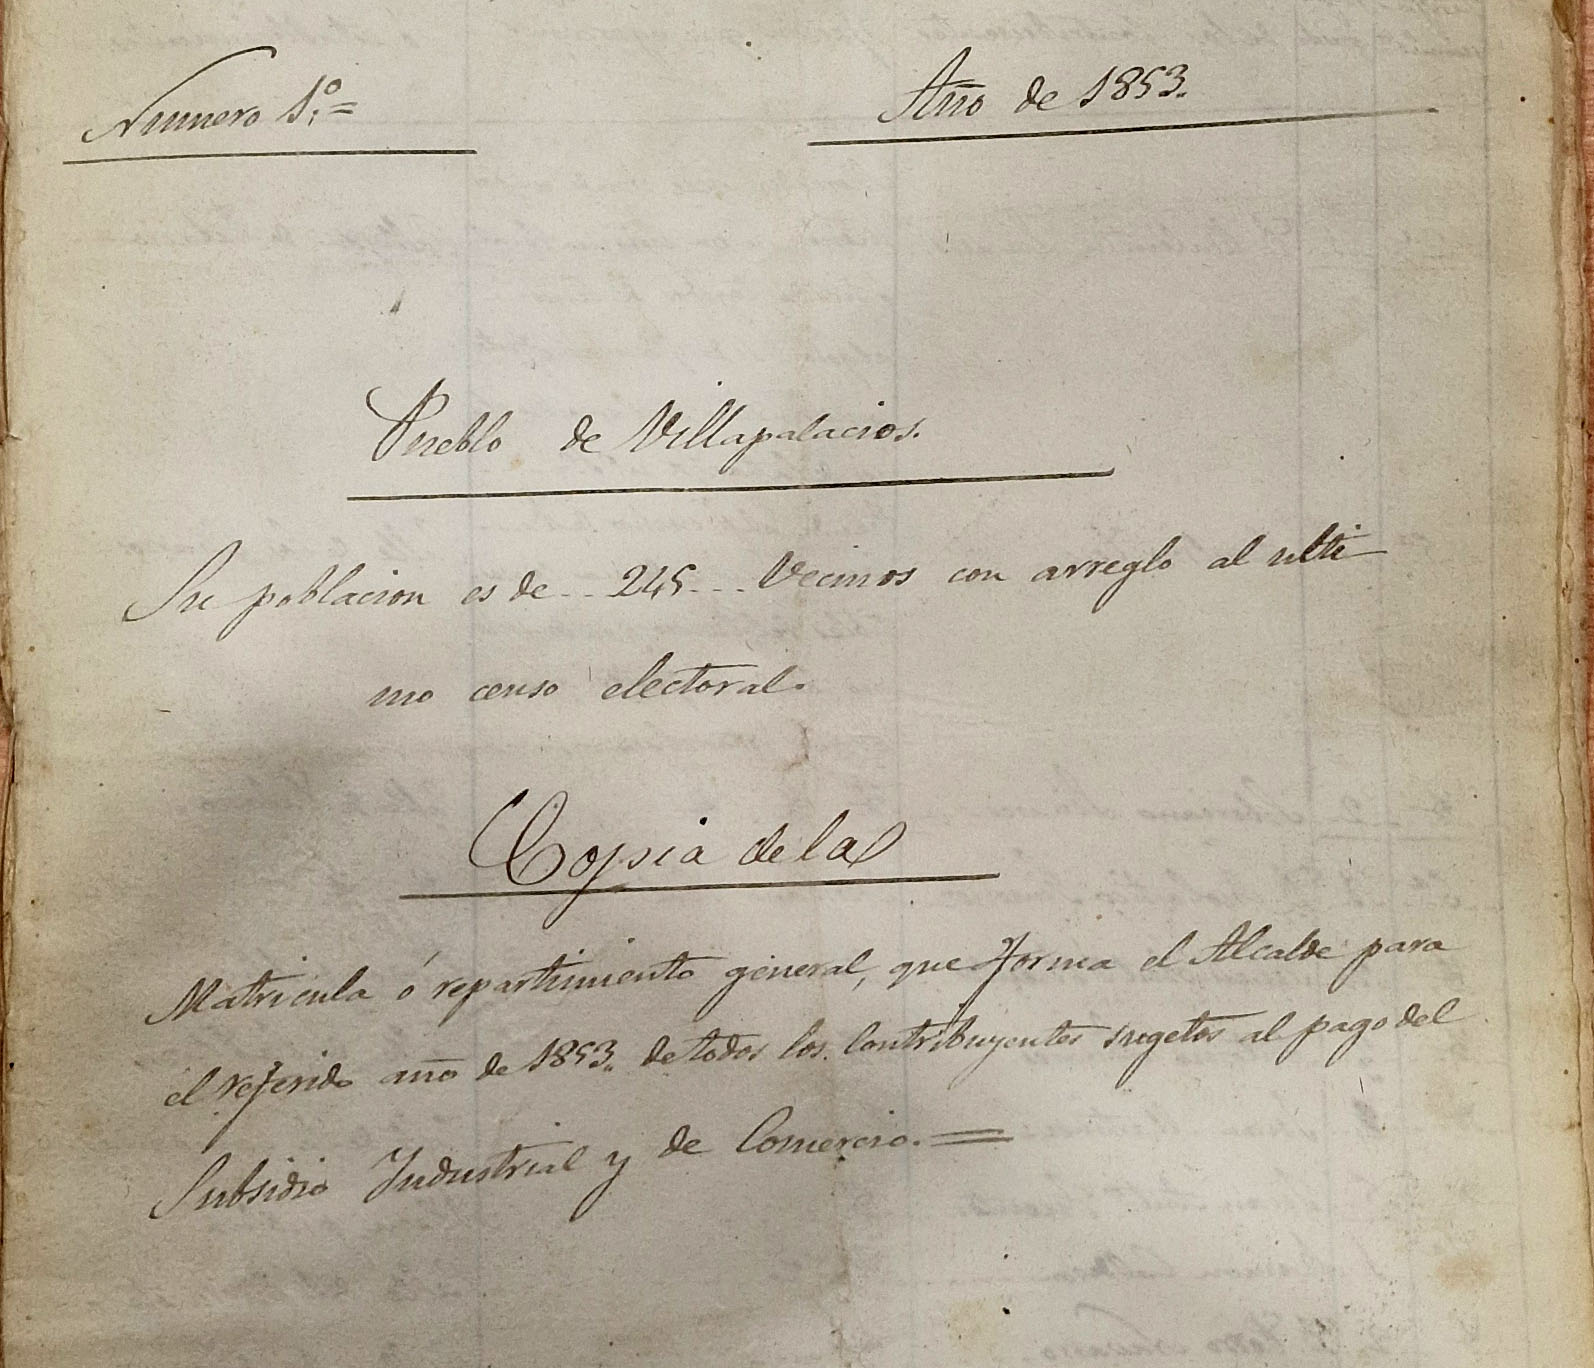 Numero 1.º=
Año de 1853.
Pueblo de Villapalacios.
Su poblacion es de - - 245 - - - Vecinos con arreglo al ulti
mo censo electoral.
Copia de la
Matricula ó repartimiento general, que forma el Alcalde para
el referido año de 1853. de todos los Contribuyentes sugetos al pago del
Subsidio Industrial y de Comercio.=